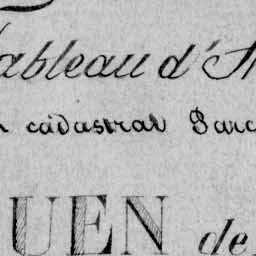 Tableau d'A
cadastral Parc
UEN de